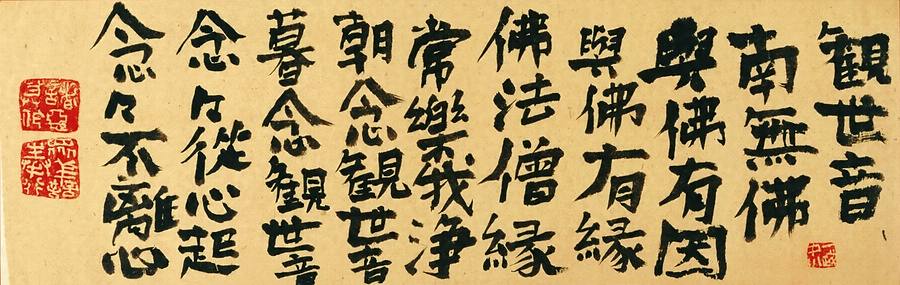 観世音
南無佛
與佛有因
與佛有縁
佛法僧縁
常樂我浄
朝念観世音
暮念観世音
念々從心起
念々不離心